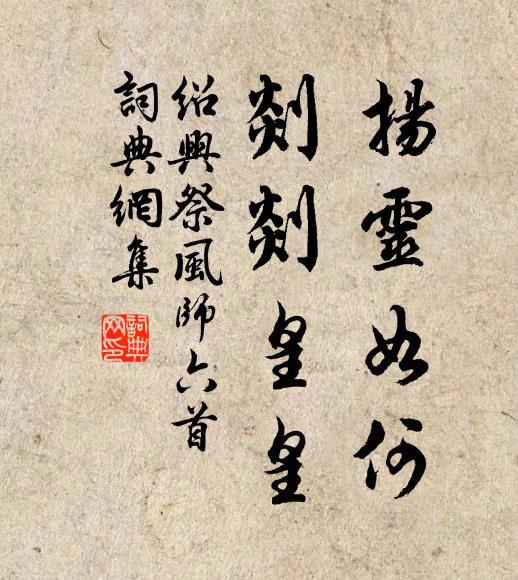 揚靈如何
剡剡皇皇
紹興祭風師六首
詞典網集
詞典網印